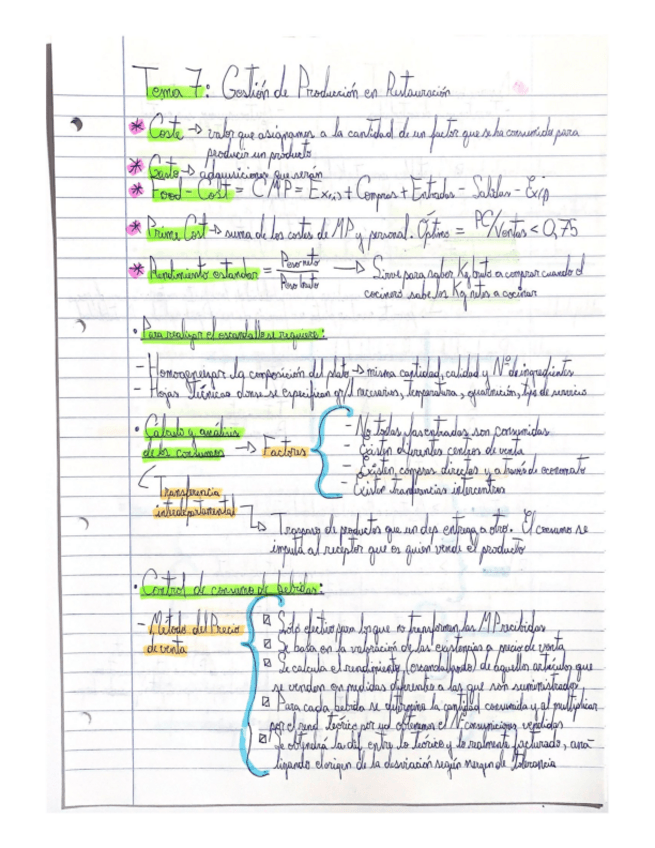 Tema 7: Gestión de Producción en Restauración
* Coste → valor que asignamos a la cantidad de un factor que se ha consumido para
producir un producto
* Gasto → adquisiciones que serán
* Food-Cost = C MP = Ex(i) + Compras + Entradas - Salidas - Ex/p
* Prime Cost → suma de los costes de MP y personal. Óptimo = PC/Ventas < 0,75
* Rendimiento estandar = Peso neto / Peso bruto → Sirve para saber Kg bruto a comprar cuando el
cocinero sabe los Kg netos a cocinar
• Para realizar el escandallo se requiere:
- la composición del plato → misma cantidad, calidad y Nº de ingredientes
- Hojas Técnicas donde se especifican necesarios, temperatura, guarnición, tipo de servicio
• Cálculo y análisis
de los consumos → Factores
- No todas las entradas son consumidas
- Existen diferentes centros de venta
- Existen compras directas y a través de economato
- Existen transferencias intercentros
Transferencia
interdepartamental
↳ Traspaso de productos que un dep. entrega a otro. El consumo se
imputa al receptor que es quien vende el producto
• Control de consumo de bebidas:
- Metodo del Precio
de venta
Solo efectivo para los que no transforman las MP recibidas
Se basa en la valoración de las existencias a precio de venta
Se calcula el rendimiento (escandallando) de aquellos artículos que
se venden en medidas diferentes a las que son suministrados
Para cada bebida se determina la cantidad consumida y al multiplicar
por el rend. teórico por ud obtenemos el Nº consumiciones vendidas
Se obtendrá la dif. entre lo teórico y lo realmente facturado, ana-
lizando el origen de la desviación según margen de tolerancia